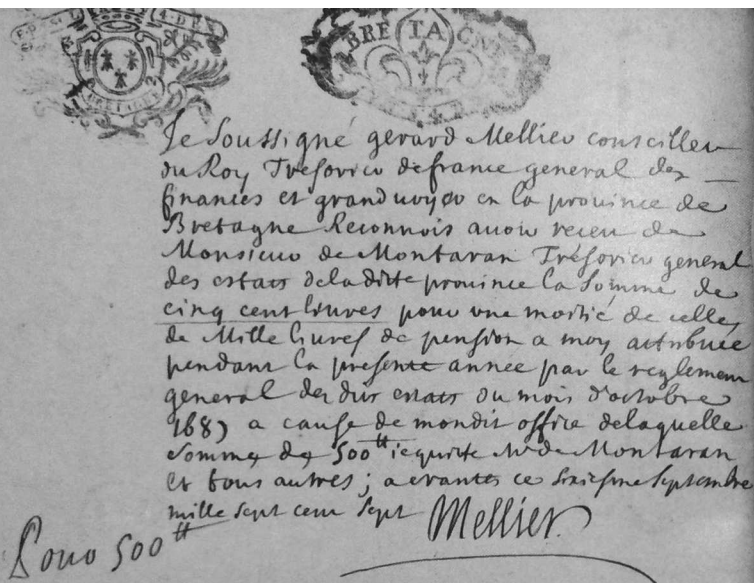 BRETAGNE
BRE TA GNE
Je Soussigné gerard Mellier conseiller
du Roy Tresorier defrance general des
finances et grand voyer en la province de
Bretagne Reconnois avoir receu de
Monsieur de Montaran Trésorier general
des estats deladitte province la Somme de
cinq cent livres pour une moitié de celle
de Mille livres de pension a moy attribuée
pendant la presente année par le reglement
general des dits estats du mois d'octobre
1687 a cause de mondit office delaquelle
somme de 500tt iequitte Mr de Montaran
et tous autres; a nantes ce sixiesme Septembre
mille Sept cent Sept Mellier
Pour 500tt